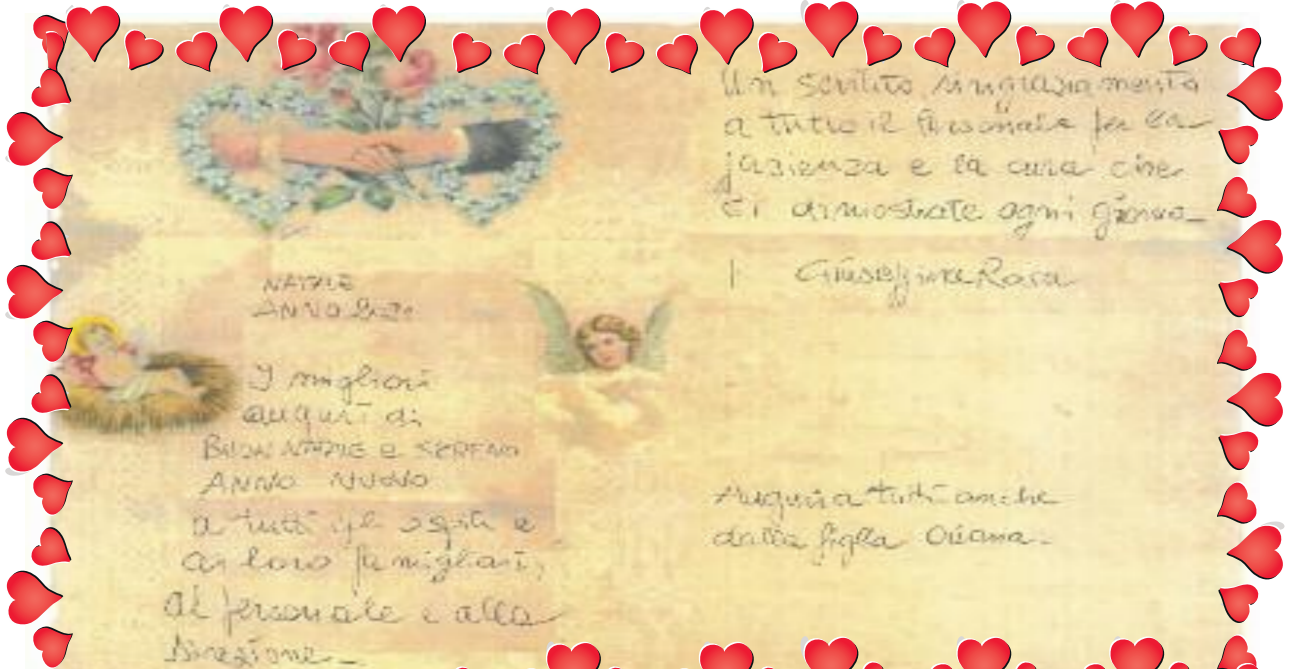 NATALE
ANNO 2020
I migliori
auguri di
BUON NATALE E SERENO
ANNO NUOVO
a tutti gli ospiti e
ai loro famigliari,
al personale e alla
Direzione.
Un sentito ringraziamento
a tutto il Personale per la
pazienza e la cura che
ci dimostrate ogni giorno
Giuseppina Rosa
Auguri a tutti anche
dalla figlia Oriana.